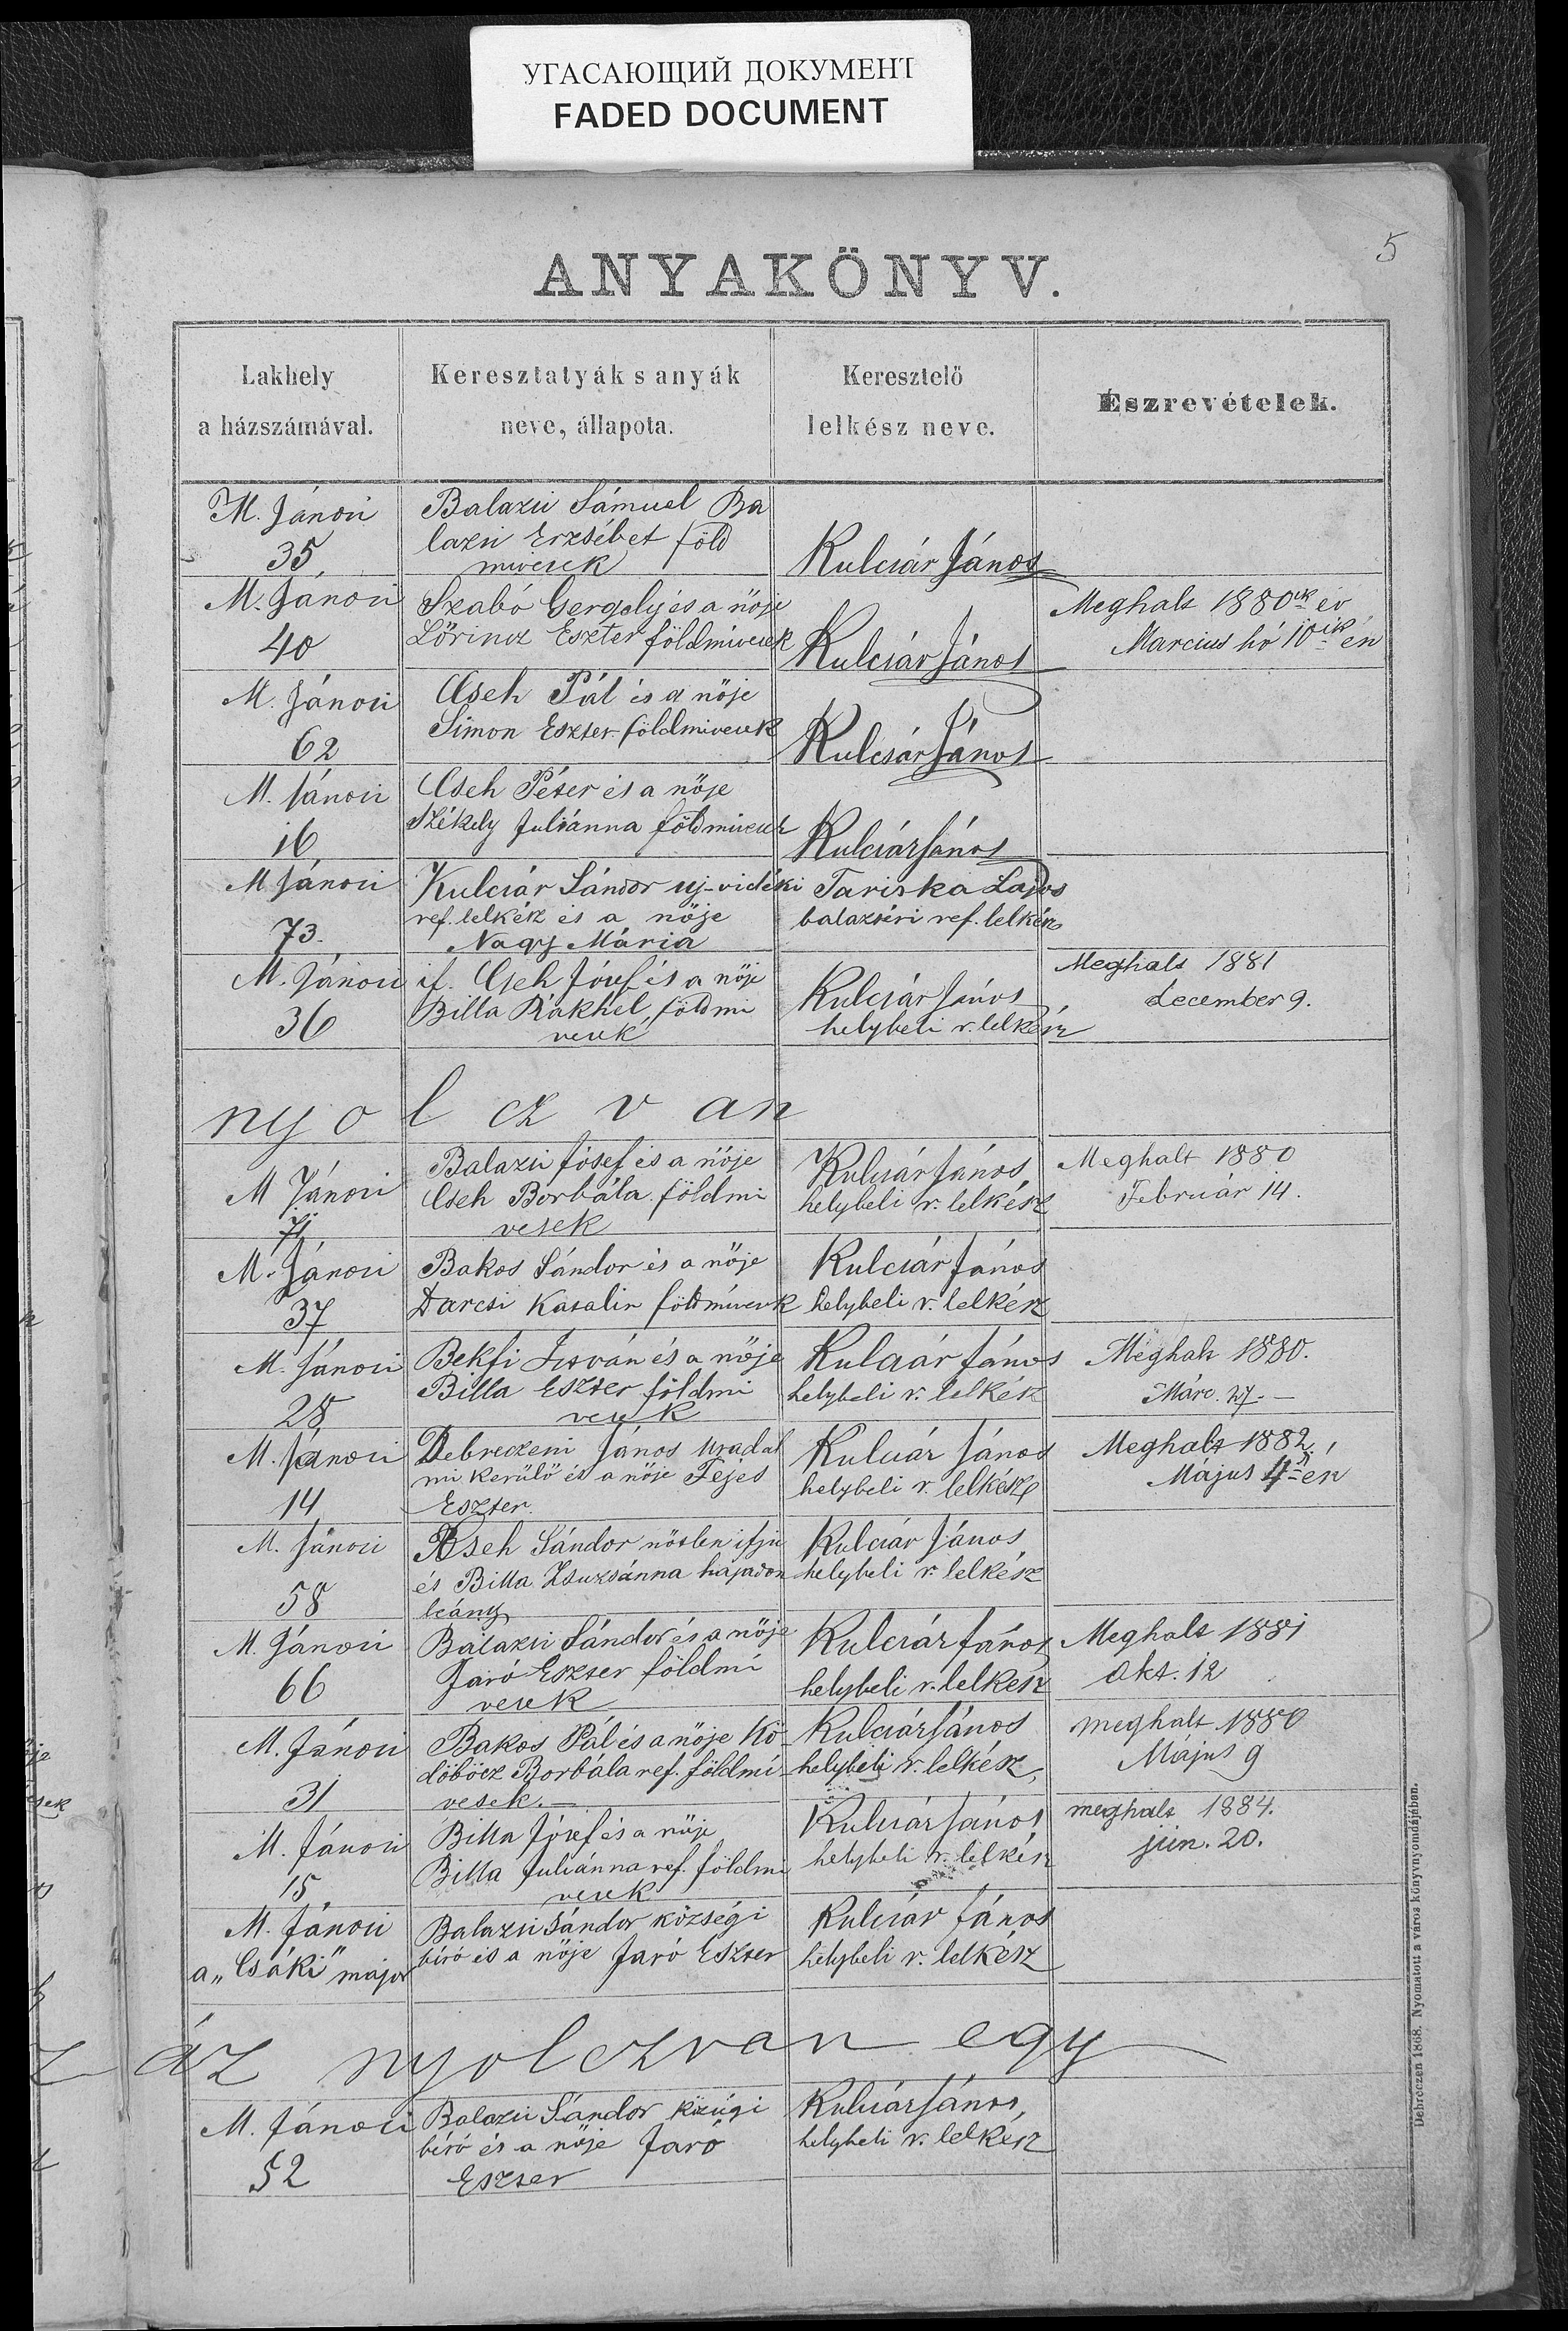 УГАСАЮЩИЙ ДОКУМЕНТ
FADED DOCUMENT
5
ANYAKÖNYV.
Lakhely
a házszámával.
Keresztatyák s anyák
neve, állapota.
Keresztelő
lelkész neve.
Észrevételek.
M. Jánosi
35.
Balazsi Sámuel Ba
lazsi Erzsébet föld
mivesek
Kulcsár János
M. Jánosi
40
Szabó Gergely és a nöje
Lőrincz Eszter földmivesek
Kulcsár János
Meghalt 1880ik év
Marcius hó 10ik én
M. Jánosi
62
Cseh Pál és a nöje
Simon Eszter földmivesek
Kulcsár János
M. Jánosi
16
Cseh Péter és a nöje
Székely Juliánna földmivesek
Kulcsár János
M Jánosi
73.
Kulcsár Sándor uj-vidéki
ref. lelkész és a nöje
Nagy Mária
Tariska Lajos
balazséri ref. lelkész
M. Jánosi
36
if. Cseh Jósef és a nöje
Billa Rákhel, földmi
vesek
Kulcsár János
helybeli r. lelkész
Meghalt 1881
december 9.
nyolczvan
M Jánosi
71.
Balazsi Jósef és a nöje
Cseh Borbála földmi
vesek
Kulcsár János
helybeli r. lelkész
Meghalt 1880
Február 14.
M. Jánosi
37
Bakos Sándor és a nöje
Darcsi Katalin földmivesek
Kulcsár János
helybeli r. lelkész
M. Jánosi
28
Bekfi István és a nöje
Billa Eszter földmi
vesek
Kulcsár János
helybeli r. lelkész
Meghalt 1880.
Márc. 27. —
M. Jánosi
14
Debreczeni János uradal
mi kerülö és a nöje Fejes
Eszter.
Kulcsár János
helybeli r. lelkész
Meghalt 1882
Május 4-én
M. Jánosi
58
Cseh Sándor nötlen ifju
és Billa Zsuzsánna hajadon
leány
Kulcsár János
helybeli r. lelkész
M. Jánosi
66
Balazsi Sándor és a nöje
Jaró Eszter földmi
vesek
Kulcsár János
helybeli r. lelkész
Meghalt 1881
Okt. 12
M. Jánosi
31
Bakos Pál és a nöje Kö-
döböcz Borbála ref. földmi-
vesek. —
Kulcsár János
helybeli r. lelkész
meghalt 1880
Május 9
M. Jánosi
15
Billa Jósef és a nöje
Billa Juliánna ref. földmi
vesek
Kulcsár János
helybeli r. lelkész
meghalt 1884.
jún. 20.
M. Jánosi
a „Csáki" major
Balazsi Sándor községi
biró és a nöje Jaró Eszter
Kulcsár János
helybeli r. lelkész
áz nyolczvan egy
M. Jánosi
52
Balazsi Sándor községi
biró és a nöje Jaró
Eszter
Kulcsár János,
helybeli r. lelkész
Debreczen 1868. Nyomatott a város könyvnyomdájában.